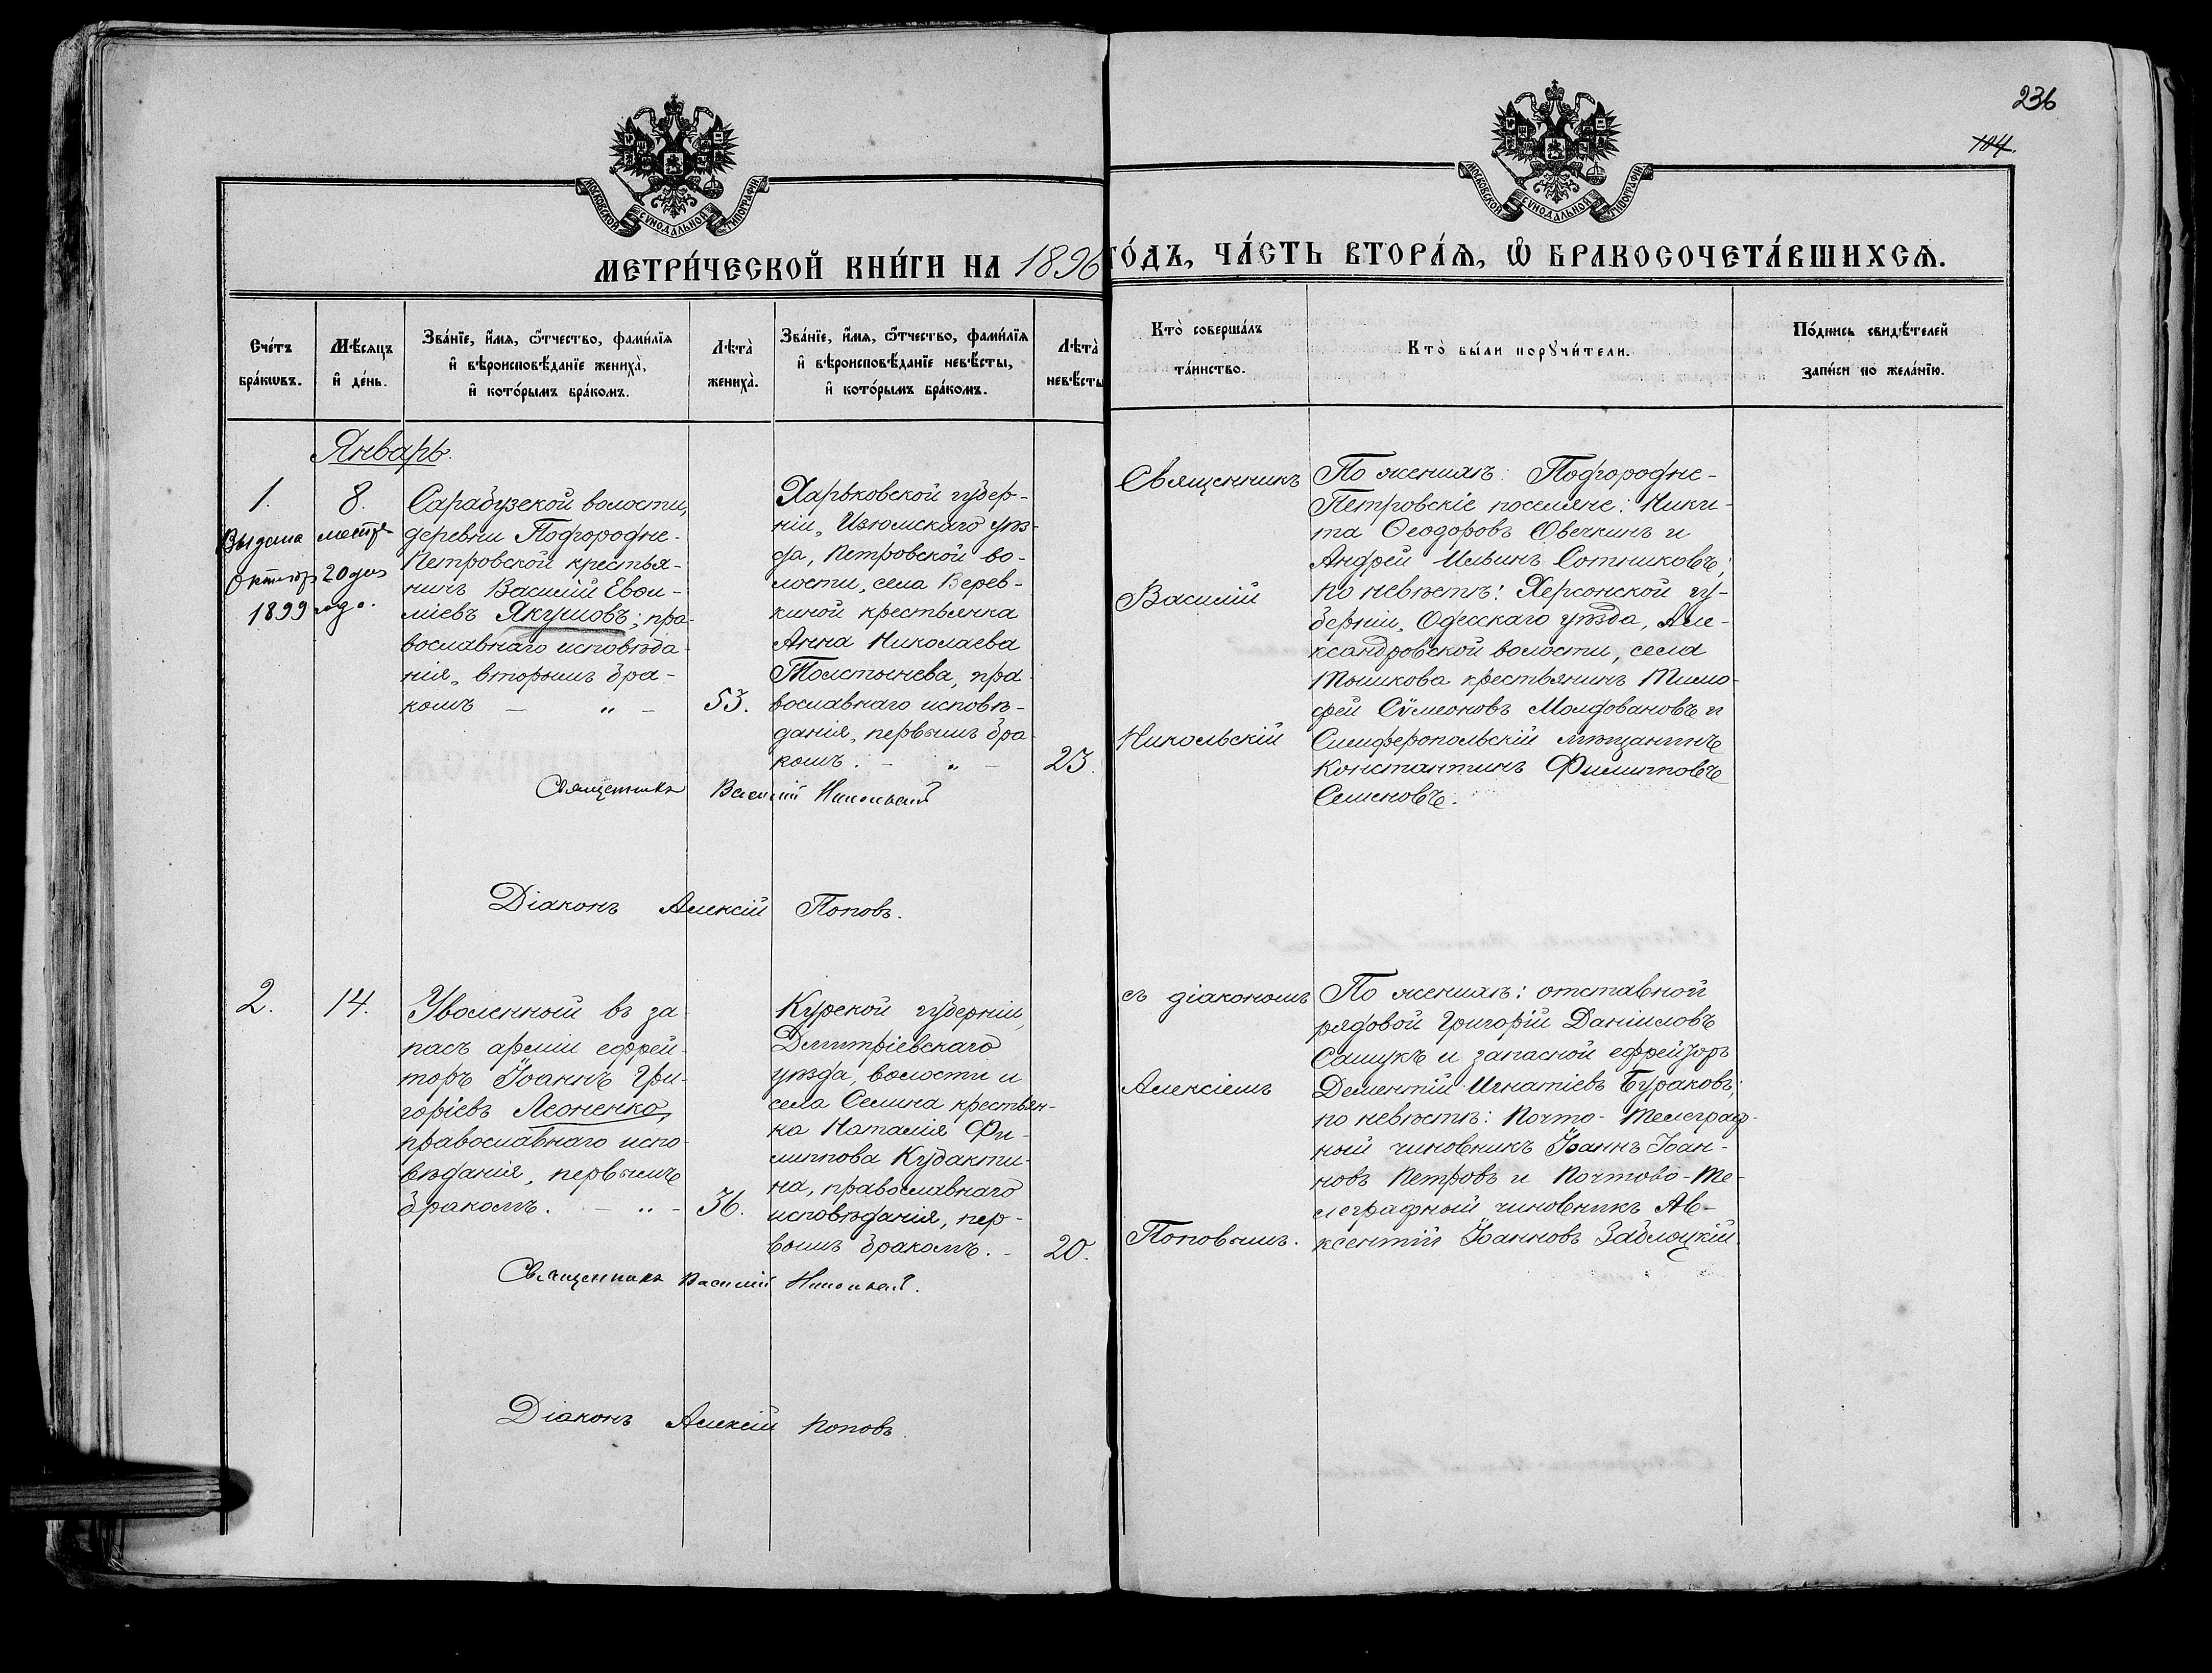 236
104.
МОСКОВСКОЙ СѴНОДАЛЬНОЙ ТИПОГРАФІИ
МОСКОВСКОЙ СѴНОДАЛЬНОЙ ТИПОГРАФІИ
МЕТРИ́ЧЕСКОЙ КНИ́ГИ НА 1896 ГО́ДЪ, ЧА́СТЬ ВТОРА́Ѧ, Ѽ БРАКОСОЧЕТА́ВШИХСѦ.
Сче́тъ
бра́кѡвъ.
Мѣ́сяцъ
и҆ де́нь.
Зва́нїе, и҆́мя, ѻ҆́тчество, фами́лїя
и҆ вѣроисповѣ́данїе жениха̀,
и҆ кото́рымъ бра́комъ.
Лѣта̀
жениха̀.
Зва́нїе, и҆́мя, ѻ҆́тчество, фами́лїя
и҆ вѣроисповѣ́данїе невѣ́сты,
и҆ кото́рымъ бра́комъ.
Лѣта̀
невѣ́сты
Кто̀ соверша́лъ
та́инство.
Кто̀ бы́ли порꙋчи́тели.
По́дпись свидѣ́телей
за́писи по жела́нїю.
Январь.
1.
8.
Выдана метр-
Октябр 20 дня
1899 года.
Сарабузской волости,
деревни Подгородне-
Петровской крестья-
нинъ Василій Евои-
ліевъ Якушовъ; пра-
вославнаго исповѣда-
нія, вторымъ бра-
комъ — " —
53.
Харьковской губер-
ніи, Изюмскаго уѣз-
да, Петровской во-
лости, села Верев-
киной крестьянка
Анна Николаева
Толстынева, пра-
вославнаго исповѣ-
данія, первымъ бра-
комъ. — " —
23.
Священникъ Василій Никольскій
Діаконъ Алексій Поповъ.
Священникъ
Василій
Никольскій
По женихѣ: Подгородне-
Петровскіе поселяне: Ники-
та Ѳеодоровъ Овечкинъ и
Андрей Ильинъ Сотниковъ;
по невѣстѣ: Херсонской гу-
берніи, Одесскаго уѣзда, Але-
ксандровской волости, села
Мышкова крестьянинъ Тимо-
фей Сѵмеоновъ Молдовановъ и
Симферопольскій мѣщанинъ
Константинъ Филипповъ
Семеновъ.
2.
14.
Уволенный въ за-
пасъ арміи ефрей-
торъ Іоаннъ Гри-
горіевъ Леоненко,
православнаго испо-
вѣданія, первымъ
бракомъ. — " —
36.
Курской губерніи,
Дмитріевскаго
уѣзда, волости и
села Селина крестьян-
ка Наталія Фи-
липпова Кудакти-
на, православнаго
исповѣданія, пер-
вымъ бракомъ. —
20.
Священникъ Василій Никольскій.
Діаконъ Алексій Поповъ.
съ діакономъ
Алексіемъ
Поповымъ.
По женихѣ: отставной
рядовой Григорій Даніиловъ
Сашукъ и запасной ефрейторъ
Дементій Игнатіевъ Бураковъ;
по невѣстѣ: Почто-Телеграф-
ный чиновникъ Іоаннъ Іоан-
новъ Петровъ и Почтово-Те-
леграфный чиновникъ Ав-
ксентій Іоанновъ Заблоцкій.